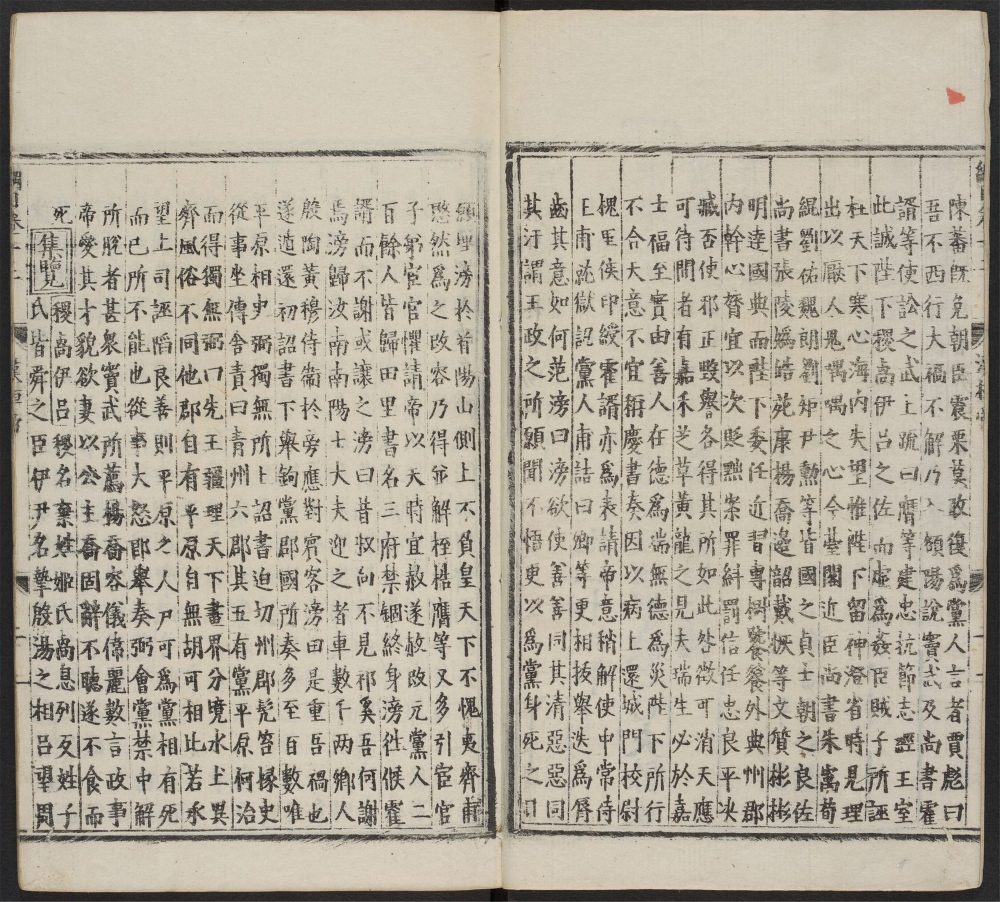 陳蕃旣免朝臣震栗莫敢復爲黨人言者賈彪曰
吾不西行大福不解乃入雒陽說竇武及尚書霍
諝等使訟之武上疏曰膺等建忠抗節志經王室
此誠陛下稷卨伊呂之佐而虛爲姦臣賊子所誣
枉天下寒心海內失望惟陛下留神澄省時見理
出以厭人鬼喁喁之心今臺閣近臣尚書朱㝢荀
緄劉佑魏朗劉矩尹勲等皆國之貞士朝之良佐
尚書張陵嬀皓苑康楊喬邊韶戴恢等文質彬彬
明達國典而陛下委任近習專樹饕餮外典州郡
內幹心膂宜以次貶黜案罪糾罰信任忠良平決
臧否使邪正毀譽各得其所如此咎徵可消天應
可待間者有嘉禾芝草黃龍之見夫瑞生必於嘉
士福至實由善人在德爲瑞無德爲災陛下所行
不合天意不宜稱慶書奏因以病上還城門校尉
槐里侯印綬霍諝亦爲表請帝意稍解使中常侍
王甫就獄訊黨人甫詰曰卿等更相拔舉迭爲脣
齒其意如何范滂曰滂欲使善善同其清惡惡同
其汙謂王政之所願聞不悟更以爲黨身死之日
願埋滂於首陽山側上不負皇天下不愧夷齊甫
愍然爲之改容乃得並解桎梏膺等又多引宦官
子弟宦官懼請帝以天時宜赦遂赦改元黨人二
百餘人皆歸田里書名三府禁錮終身滂徃候霍
諝而不謝或讓之滂曰昔叔向不見祁奚吾何謝
焉滂歸汝南南陽士大夫迎之者車數千兩鄉人
殷陶黃穆侍衞於旁應對賓客滂曰是重吾禍也
遂遁還初詔書下舉鉤黨郡國所奏多至百數唯
平原相史弼獨無所上詔書迫切州郡髡笞掾史
從事坐傳舍責曰青州六郡其五有黨平原何治
而得獨無弼曰先王疆理天下畫界分境水土異
齊風俗不同他郡自有平原自無胡可相比若承
望上司誣陷良善則平原之人戶可爲黨相有死
而已所不能也從事大怒卽舉奏弼會黨禁中解
所脫者甚衆竇武所薦楊喬容儀偉麗數言政事
帝愛其才貌欲妻以公主喬固辭不聽遂不食而
死集覽稷卨伊呂稷名棄姓姬氏卨息列反姓子
氏皆舜之臣伊尹名摯殷湯之相呂望周